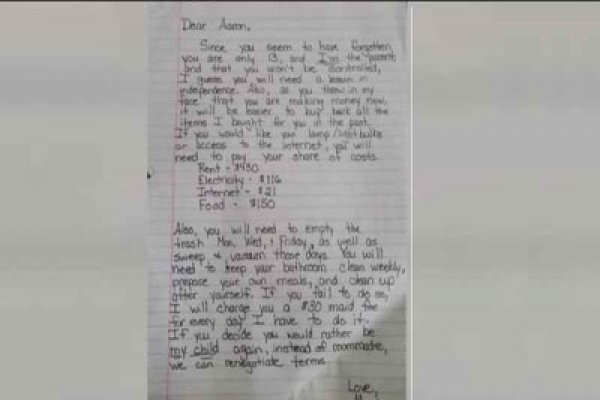 Dear Aaron,
Since you seem to have forgotten
you are only 13, and I'm the "parent,"
and that you won't be controlled,
I guess you will need a lesson in
independence. Also, as you threw in my
face that you are making money now,
it will be easier to buy back all the
items I bought for you in the past.
If you would like your lamp/lightbulbs
or access to the internet, you will
need to pay your share of costs.
Rent - $430
Electricity - $116
Internet - $21
Food - $150
Also, you will need to empty the
trash Mon, Wed, & Friday, as well as
sweep & vacuum those days. You will
need to keep your bathroom clean weekly,
prepare your own meals, and clean up
after yourself. If you fail to do so,
I will charge you a $30 maid fee
for every day I have to do it.
If you decide you would rather be
my child again, instead of roommate,
we can renegotiate terms.
Love,